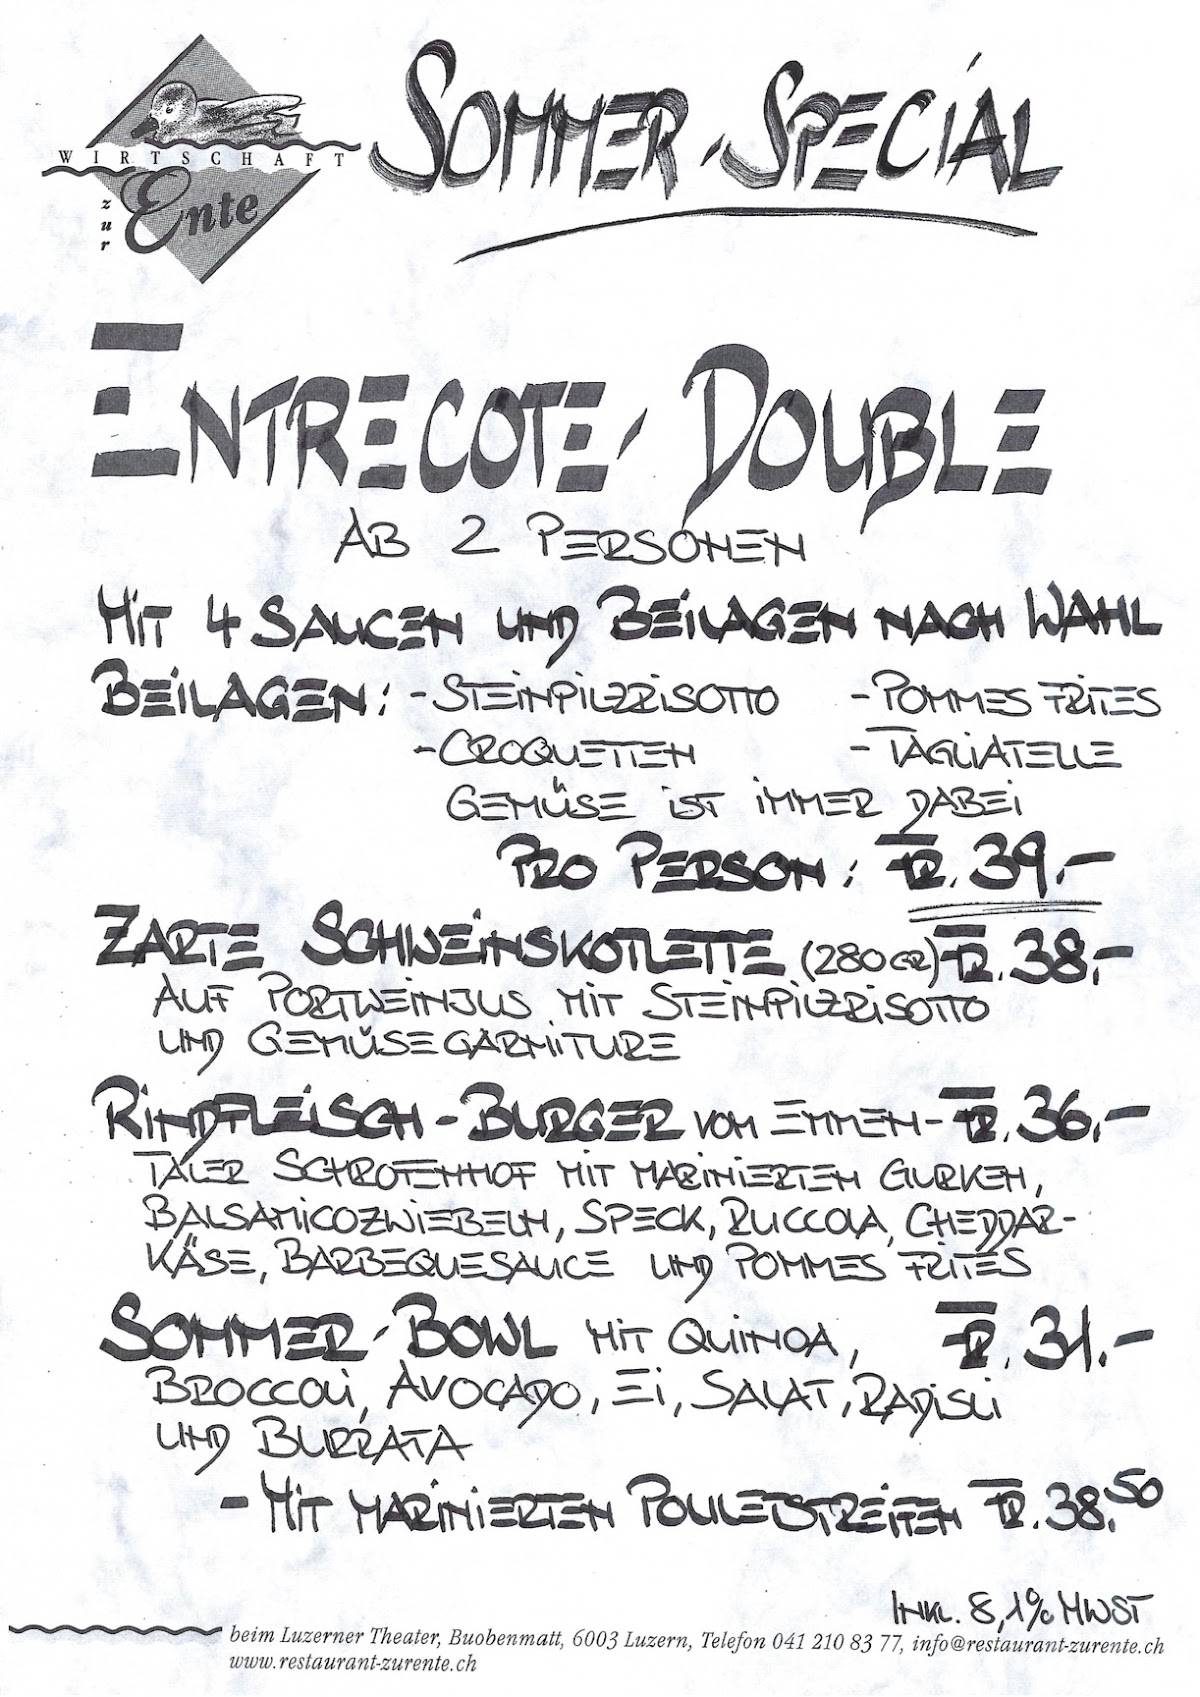 WIRTSCHAFT
zur
Ente
SOMMER-SPECIAL
ENTRECOTE-DOUBLE
AB 2 PERSONEN
MIT 4 SAUCEN UND BEILAGEN NACH WAHL
BEILAGEN: -STEINPILZRISOTTO -POMMES FRITES
-CROQUETTEN -TAGLIATELLE
GEMÜSE IST IMMER DABEI
PRO PERSON: FR. 39.-
ZARTE SCHWEINSKOTLETTE (280 GR) FR. 38.-
AUF PORTWEINJUS MIT STEINPILZRISOTTO
UND GEMÜSEGARNITURE
RINDFLEISCH-BURGER VOM EMMEN- FR. 36.-
TALER SCHROTENHOF MIT MARINIERTEN GURKEN,
BALSAMICOZWIEBELN, SPECK, RUCCOLA, CHEDDAR-
KÄSE, BARBEQUESAUCE UND POMMES FRITES
SOMMER-BOWL MIT QUINOA, FR. 31.-
BROCCOLI, AVOCADO, EI, SALAT, RADISLI
UND BURRATA
- MIT MARINIERTEN POULETSTREIFEN FR. 38.50
INKL. 8,1% MWST
beim Luzerner Theater, Buobenmatt, 6003 Luzern, Telefon 041 210 83 77, info@restaurant-zurente.ch
www.restaurant-zurente.ch